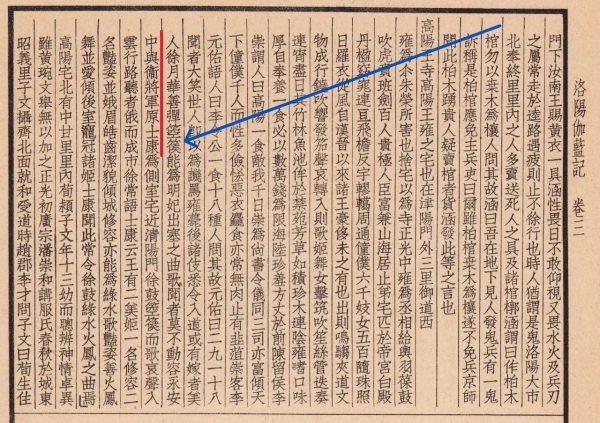 洛陽伽藍記 卷三
門下汝南王賜黃衣一具涵性畏日不敢仰視又畏水火及兵刃
之屬常走於逵路遇疲則止不徐行也時人猶謂是鬼洛陽大市
北奉終里里內之人多賣送死人之具及諸棺槨涵謂曰作柏木
棺勿以桑木爲欀人問其故涵曰吾在地下見人發鬼兵有一鬼
訴稱是柏棺應免主兵吏曰爾雖柏棺桑木爲欀遂不免兵京師
聞此柏木踴貴人疑賣棺者貨涵發此等之言也
高陽王寺高陽王雍之宅也在津陽門外三里御道西
雍爲尒朱榮所害也捨宅以爲寺正光中雍爲丞相給輿羽葆鼓
吹虎賁班劒百人貴極人臣富兼山海居止第宅匹於帝宮白殿
丹楹窈窕連亘飛檐反宇轇轕周通僮僕六千妓女五百隨珠照
日羅衣從風自漢晉以來諸王豪侈未之有也出則鳴騶夾道文
物成行鐃吹響發笳聲哀轉入則歌姬舞女擊筑吹笙絲管迭奏
連宵盡日其竹林魚池侔於禁苑芳草如積珍木連陰雍嗜口味
厚自奉養一食必以數萬錢爲限海陸珍羞方丈於前陳留侯李
崇謂人曰高陽一食敵我千日崇爲尚書令儀同三司亦富傾天
下僮僕千人而性多儉恡惡衣麤食亦常無肉止有韭菹崇客李
元佑語人曰李令公一食十八種人問其故元佑曰二九一十八
聞者大笑世人即以爲譏罵雍薨後諸伎悉令入道或有嫁者美
人徐月華善彈箜篌能爲明妃出塞之曲歌聞者莫不動容永安
中與衞將軍原士康爲側室宅近清陽門徐鼓箜篌而歌哀聲入
雲行路聽者俄而成市徐常語士康云王有二美姬一名修容二
名豔姿並娥眉皓齒潔貌傾城修容亦能爲綠水歌豔姿善火鳳
舞並愛傾後室寵冠諸姬士康聞此常令徐鼓綠水火鳳之曲焉
高陽宅北有中甘里里內荀頴子文年十三幼而聰辨神情卓異
雖黃琬文舉無以加之正光初廣宗潘崇和講服氏春秋於城東
昭義里子文攝齊北面就和受道時趙郡李才問子文曰荀生住